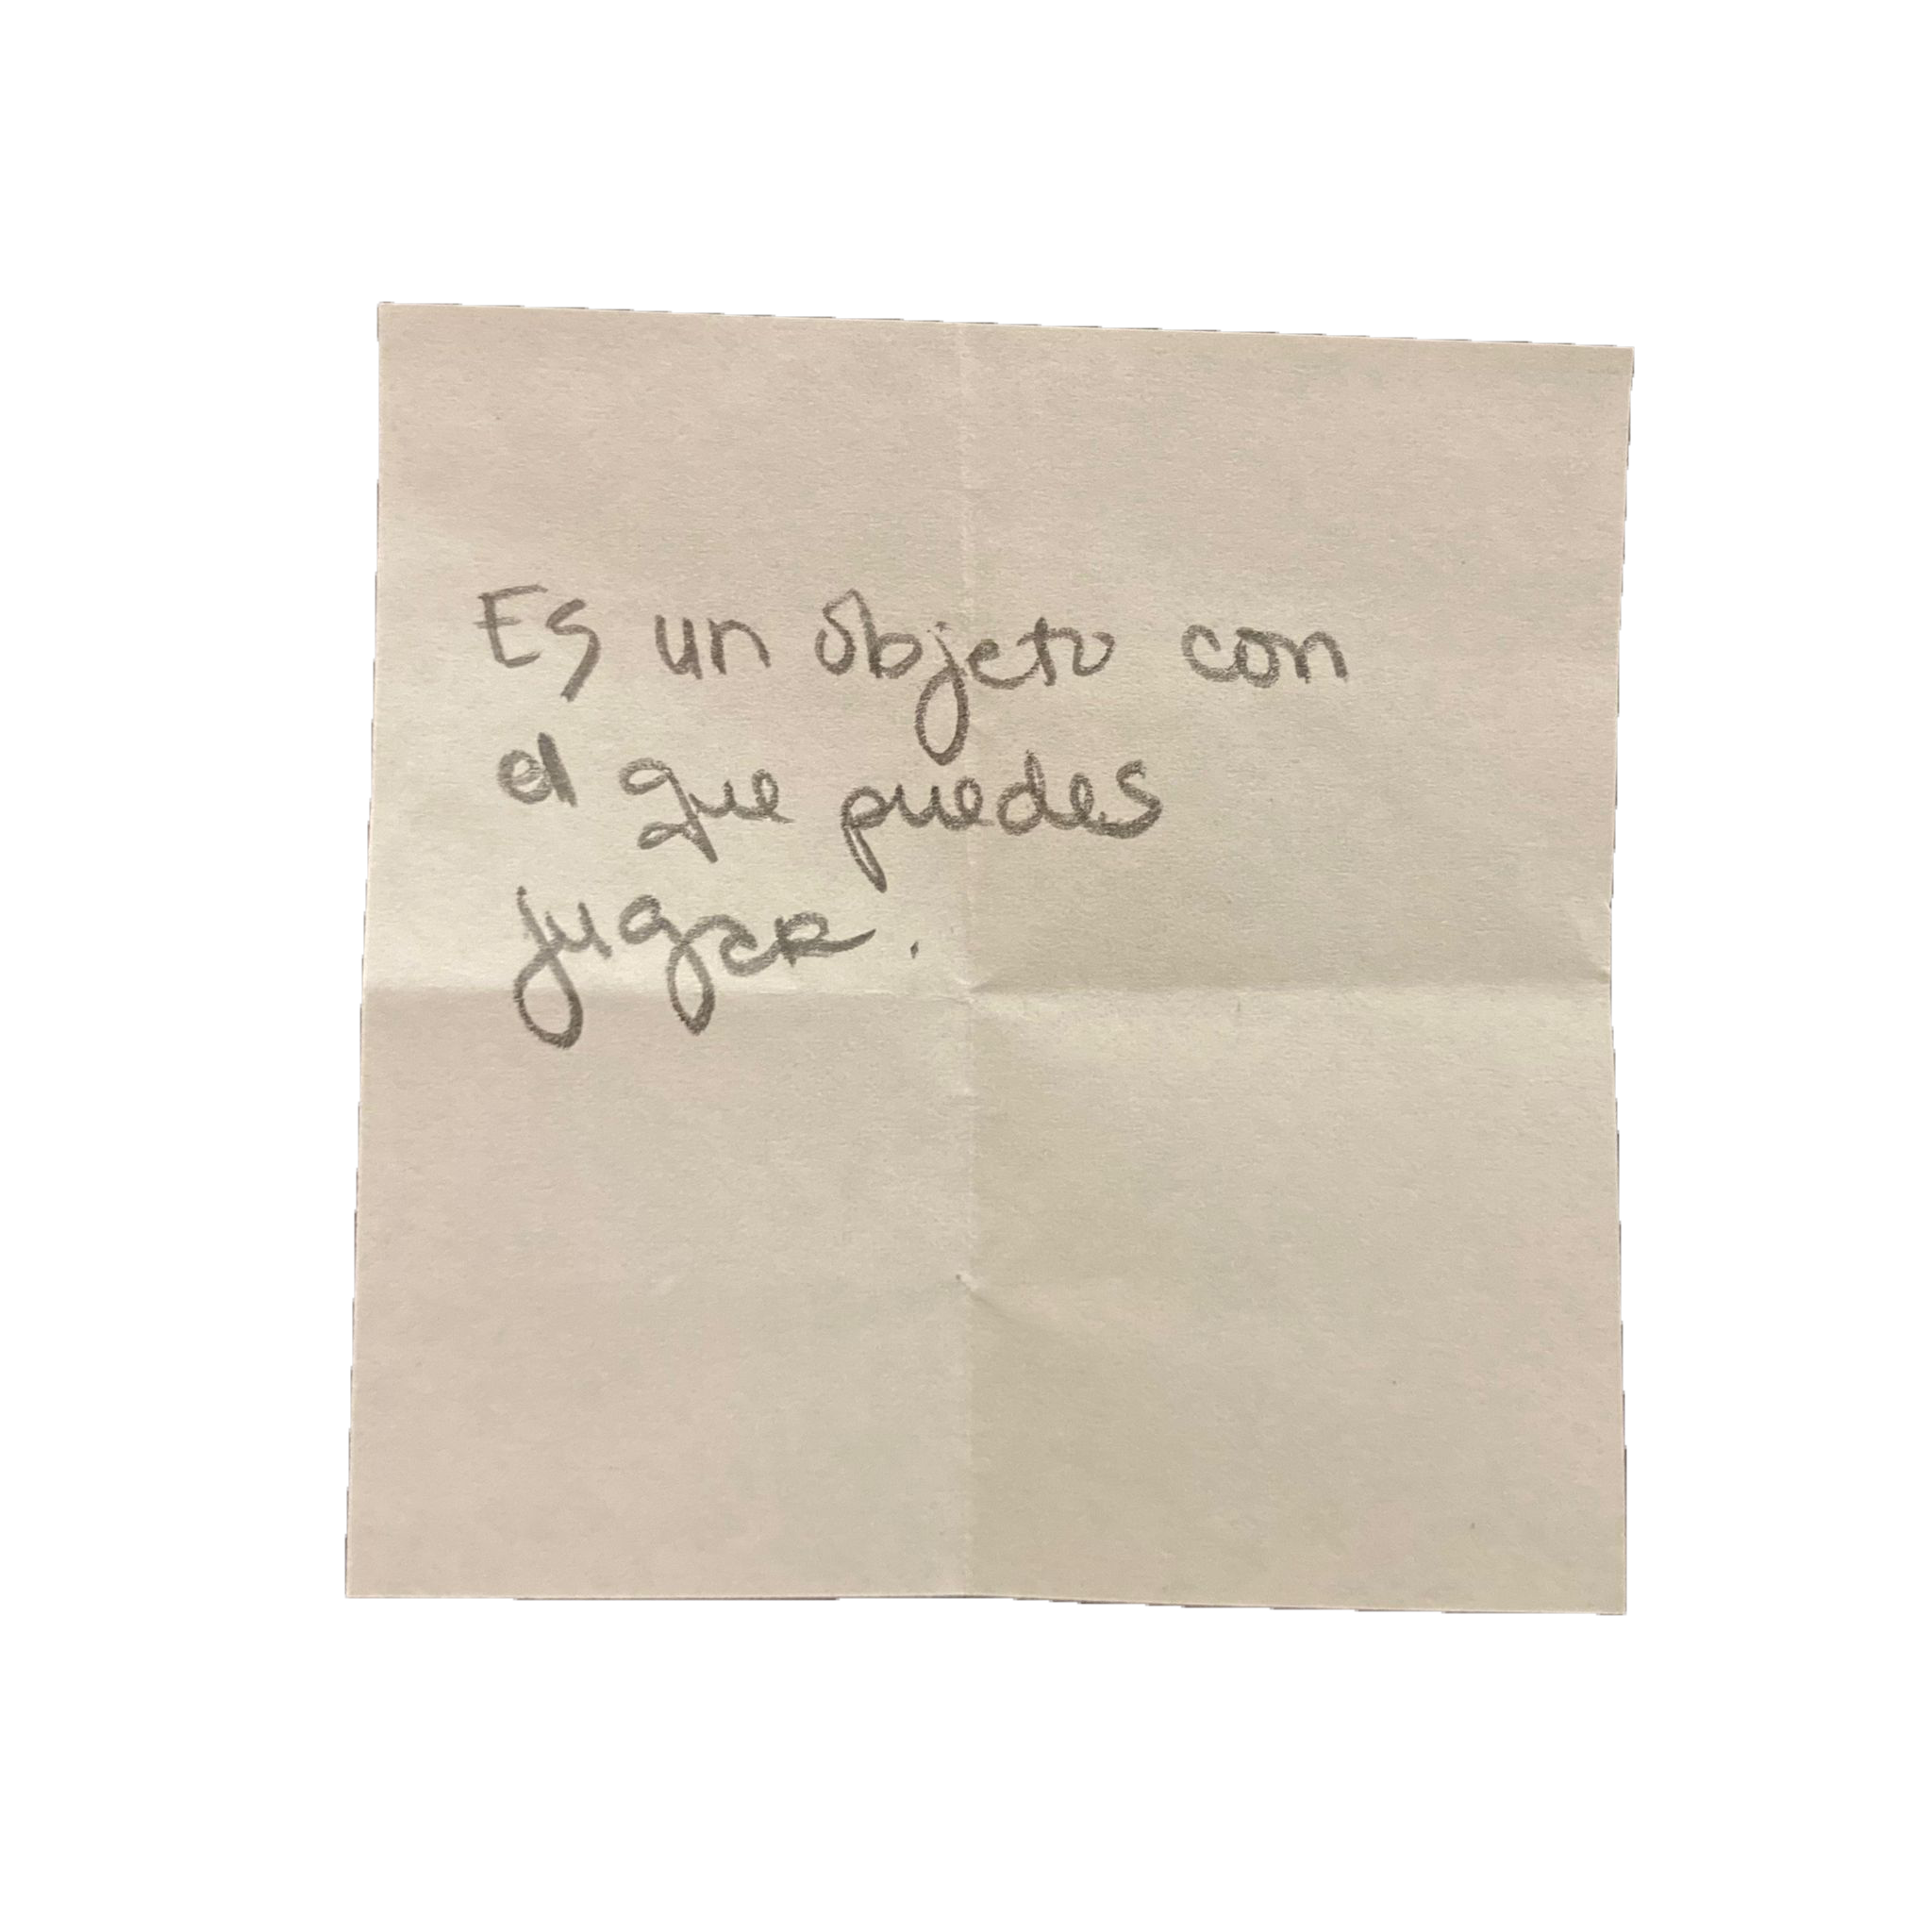 Es un objeto con
el que puedes
jugar.